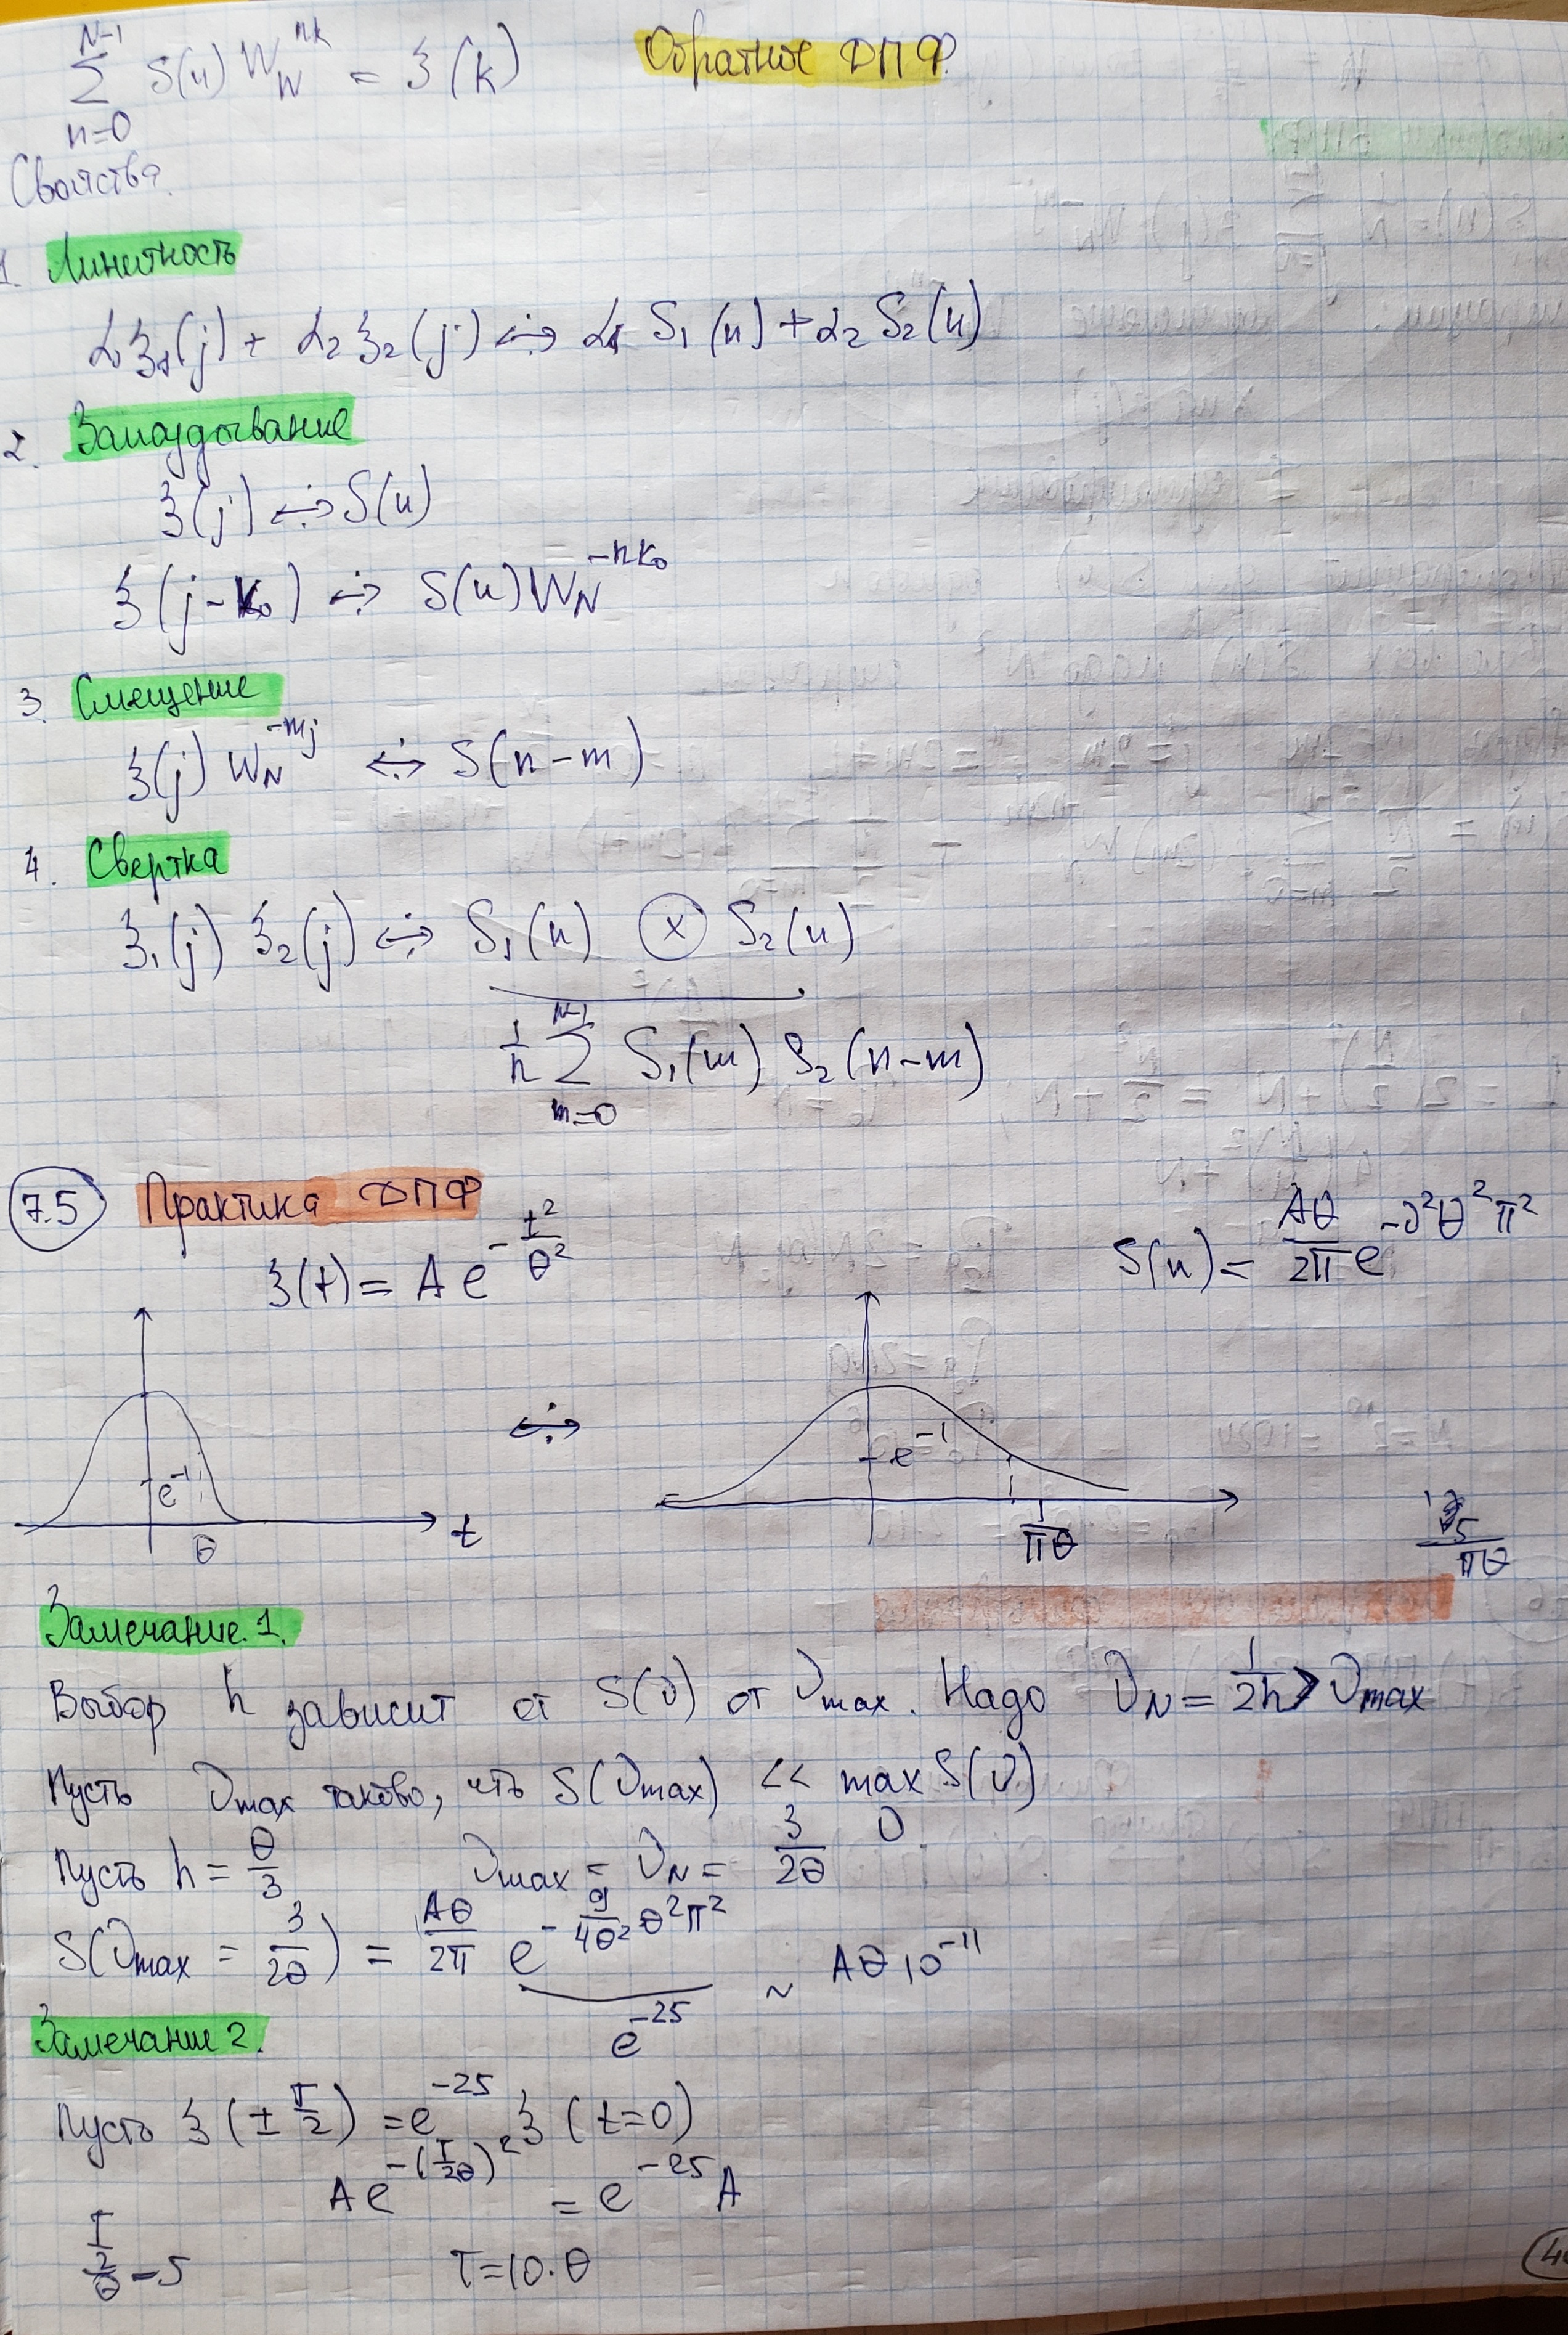 ∑_{n=0}^{N-1} S(n) W_N^{nk} = ξ(k) Обратное ДПФ.
Свойства.
1. Линейность
α₁ξ₁(j) + α₂ξ₂(j) ↔ α₁ S₁(n) + α₂ S₂(n)
2. Запаздывание
ξ(j) ↔ S(n)
ξ(j-k₀) ↔ S(n) W_N^{-nk₀}
3. Смещение
ξ(j) W_N^{-mj} ↔ S(n-m)
4. Свертка
ξ₁(j) ξ₂(j) ↔ S₁(n) ⊗ S₂(n)
1/n ∑_{m=0}^{N-1} S₁(m) S₂(n-m)
7.5 Практика ДПФ
ξ(t) = A e^{-t²/θ²} S(n) = Aθ/2π e^{-ν²θ²π²}
e⁻¹ θ t ↔ e⁻¹ 1/πθ
Замечание 1.
Выбор h зависит от S(ν) от ν_max. Надо ν_N = 1/2h > ν_max
Пусть ν_max таково, что S(ν_max) << max S(ν)
ν
Пусть h = θ/3 ν_max = ν_N = 3/2θ
S(ν_max = 3/2θ) = Aθ/2π e^{-9/4θ² θ²π²} ~ Aθ10⁻¹¹
e⁻²⁵
Замечание 2.
Пусть ξ(± T/2) = e⁻²⁵ ξ(t=0)
A e^{-(T/2θ)²} = e⁻²⁵ A
T/2/θ = 5 T = 10·θ